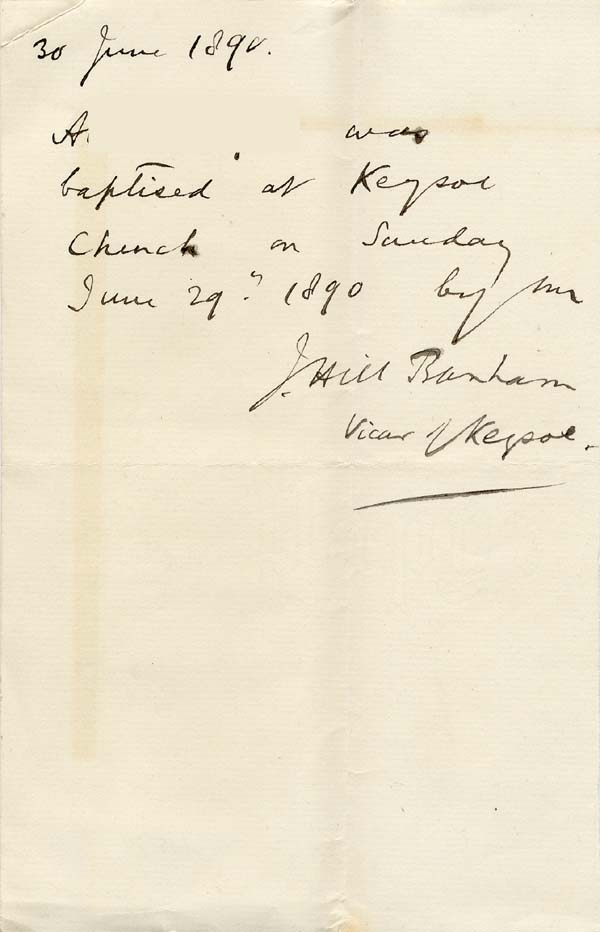 30 June 1890.
A. was
baptised at Keysoe
Church on Sunday
June 29th 1890 by me
J. Hill Banham
Vicar of Keysoe.